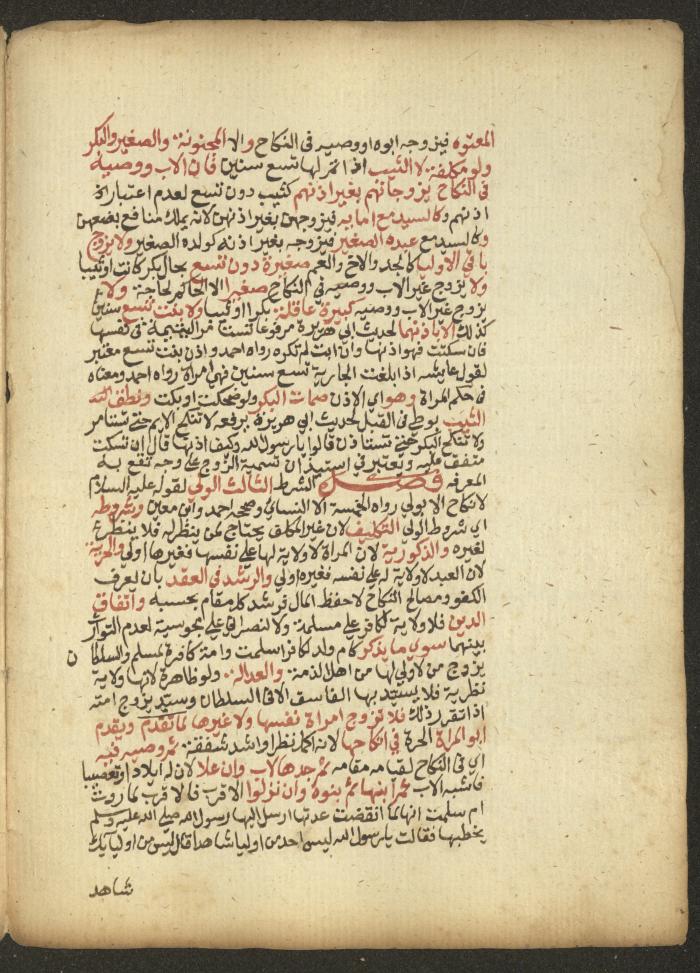 المعتوه فيزوجه ابوه او وصيه في النكاح والا المجنونة والصغير والبكر
ولو مكلفة لا الثيب اذا تم لها تسع سنين فان الاب ووصيه
في النكاح يزوجانهم بغير اذنهم كثيب دون تسع لعدم اعتبار
اذنهم وكالسيد مع امايه فيزوجهن بغير اذنهن لانه يملك منافع بضعهن
وكالسيد مع عبده الصغير فيزوجه بغير اذنه كولده الصغير ولا يزوج
باقي الاوليا كالجد والاخ والعم صغيرة دون تسع بحال بكر كانت او ثيبا
ولا يزوج غير الاب ووصيه في النكاح صغيرا الا الحاكم لحاجة ولا
يزوج غير الاب ووصيه كبيرة عاقلة بكرا او ثيبا ولا بنت تسع سنين
كذلك الا باذنهما لحديث ابي هريرة مرفوعا تستامر اليتيمة في نفسها
فان سكتت فهو اذنها وان ابت لم تكره رواه احمد واذن بنت تسع معتبر
لقول عايشه اذا بلغت الجارية تسع سنين فهي امراة رواه احمد ومعناه
في حكم المراة وهو اي الاذن صمات البكر ولو ضحكت او بكت ونطق
الثيب بوطي في القبل لحديث ابي هريرة برفعه لا تنكح الايم حتى تستامر
ولا تنكح البكر حتى تستاذن قالوا يا رسول الله وكيف اذنها قال ان تسكت
متفق عليه ويعتبر في استيذان تسمية الزوج على وجه تقع به
المعرفه فصل الشرط الثالث الولي لقوله عليه السلام
لا نكاح الا بولي رواه الخمسة الا النسائي وصححه احمد وابن معين وشروطه
اي شروط الولي التكليف لان غير المكلف يحتاج لمن ينظر له فلا ينظر
لغيره والذكورية لان المراة لا ولاية لها على نفسها فغيرها اولى والحرية
لان العبد لا ولاية له على نفسه فغيره اولي والرشد في العقد بان يعرف
الكفو ومصالح النكاح لا حفظ المال فرشد كل مقام بحسبه واتفاق
الدين فلا ولاية لكافر على مسلمة ولا لنصراني على مجوسية لعدم التوارث
بينهما سوى ما يذكر كام ولد لكافر اسلمت وامة كافرة لمسلم والسلطان
يزوج من لا ولي لها من اهل الذمة والعدالة ولو ظاهرة لانها ولاية
نظرية فلا يستبد بها الفاسق الا في السلطان وسيد يزوج امته
اذا تقرر ذلك فلا تزوج امراة نفسها ولا غيرها لما تقدم ويقدم
ابو المراة الحرة في انكاحها لانه اكمل نظرا واشد شفقة ثم وصيه فيه
اي في النكاح لقيامه مقامه ثم جدها لاب وان علا لان له ايلادا وتعصيبا
فاشبه الاب ثم ابنها ثم بنوه وان نزلوا الاقرب فالاقرب لما روت
ام سلمت انها لما انقضت عدتها ارسل اليها رسول الله صلى الله عليه وسلم
يخطبها فقالت يا رسول الله ليس احد من اوليا شاهدا قال ليس من اوليايك
شاهد